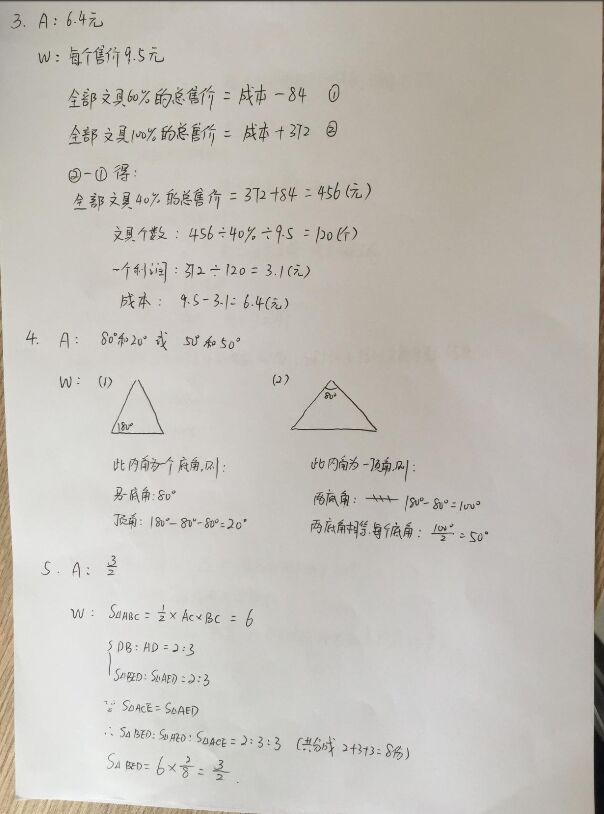 3. A: 6.4元
W: 每个售价9.5元
全部文具60%的总售价 = 成本 - 84 ①
全部文具100%的总售价 = 成本 + 372 ②
② - ① 得:
全部文具40%的总售价 = 372 + 84 = 456(元)
文具个数: 456 ÷ 40% ÷ 9.5 = 120(个)
一个利润: 372 ÷ 120 = 3.1(元)
成本: 9.5 - 3.1 = 6.4(元)
4. A: 80°和20° 或 50°和50°
W: (1) (2)
80°
180°
此内角为一个底角,则: 此内角为一顶角,则:
另一底角: 80° 两底角: 180° - 80° = 100°
顶角: 180° - 80° - 80° = 20° 两底角相等,每个底角: 100°/2 = 50°
5. A: 3/2
W: S△ABC = 1/2 × AC × BC = 6
DB : AD = 2:3
S△BED : S△AED = 2:3
∵ S△ACE = S△AED
∴ S△BED : S△AED : S△ACE = 2:3:3 (共分成 2+3+3=8份)
S△BED = 6 × 2/8 = 3/2.